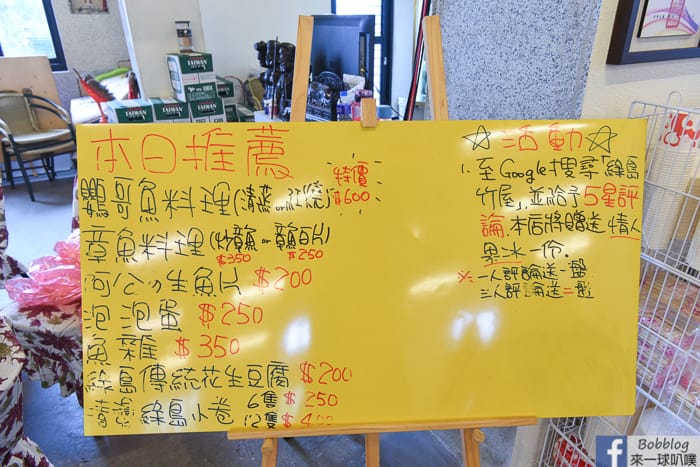 本日推薦
鸚哥魚料理(清蒸or紅燒) 特價 $600
章魚料理(炒章魚 or 章魚白片)
$350 $250
阿公ㄉ生魚片 $200
泡泡蛋 $250
魚雜 $350
綠島傳統花生豆腐 $200
綠島小卷 6隻 $250
12隻 $400
☆活動☆
1. 至Google搜尋「綠島
竹屋」,並給予5星評
論,本店將贈送情人
果冰一份.
※一人評論送一盤
三人評論送二盤
TAIWAN
TAIWAN
TAIWAN
Bobblog
來一球叭噗